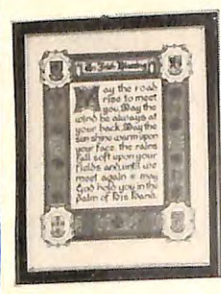 An Irish Blessing
May the road
rise to meet
you. May the
wind be always at
your back. May the
sun shine warm upon
your face, the rains
fall soft upon your
fields and until we
meet again • may
God hold you in the
palm of His Hand.